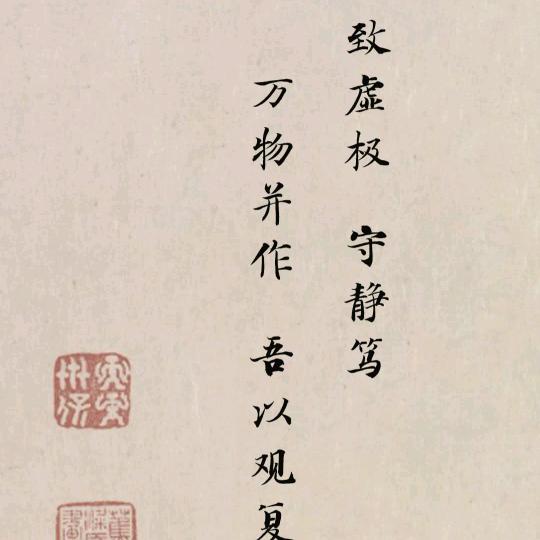 致虚极 守静笃
万物并作 吾以观复